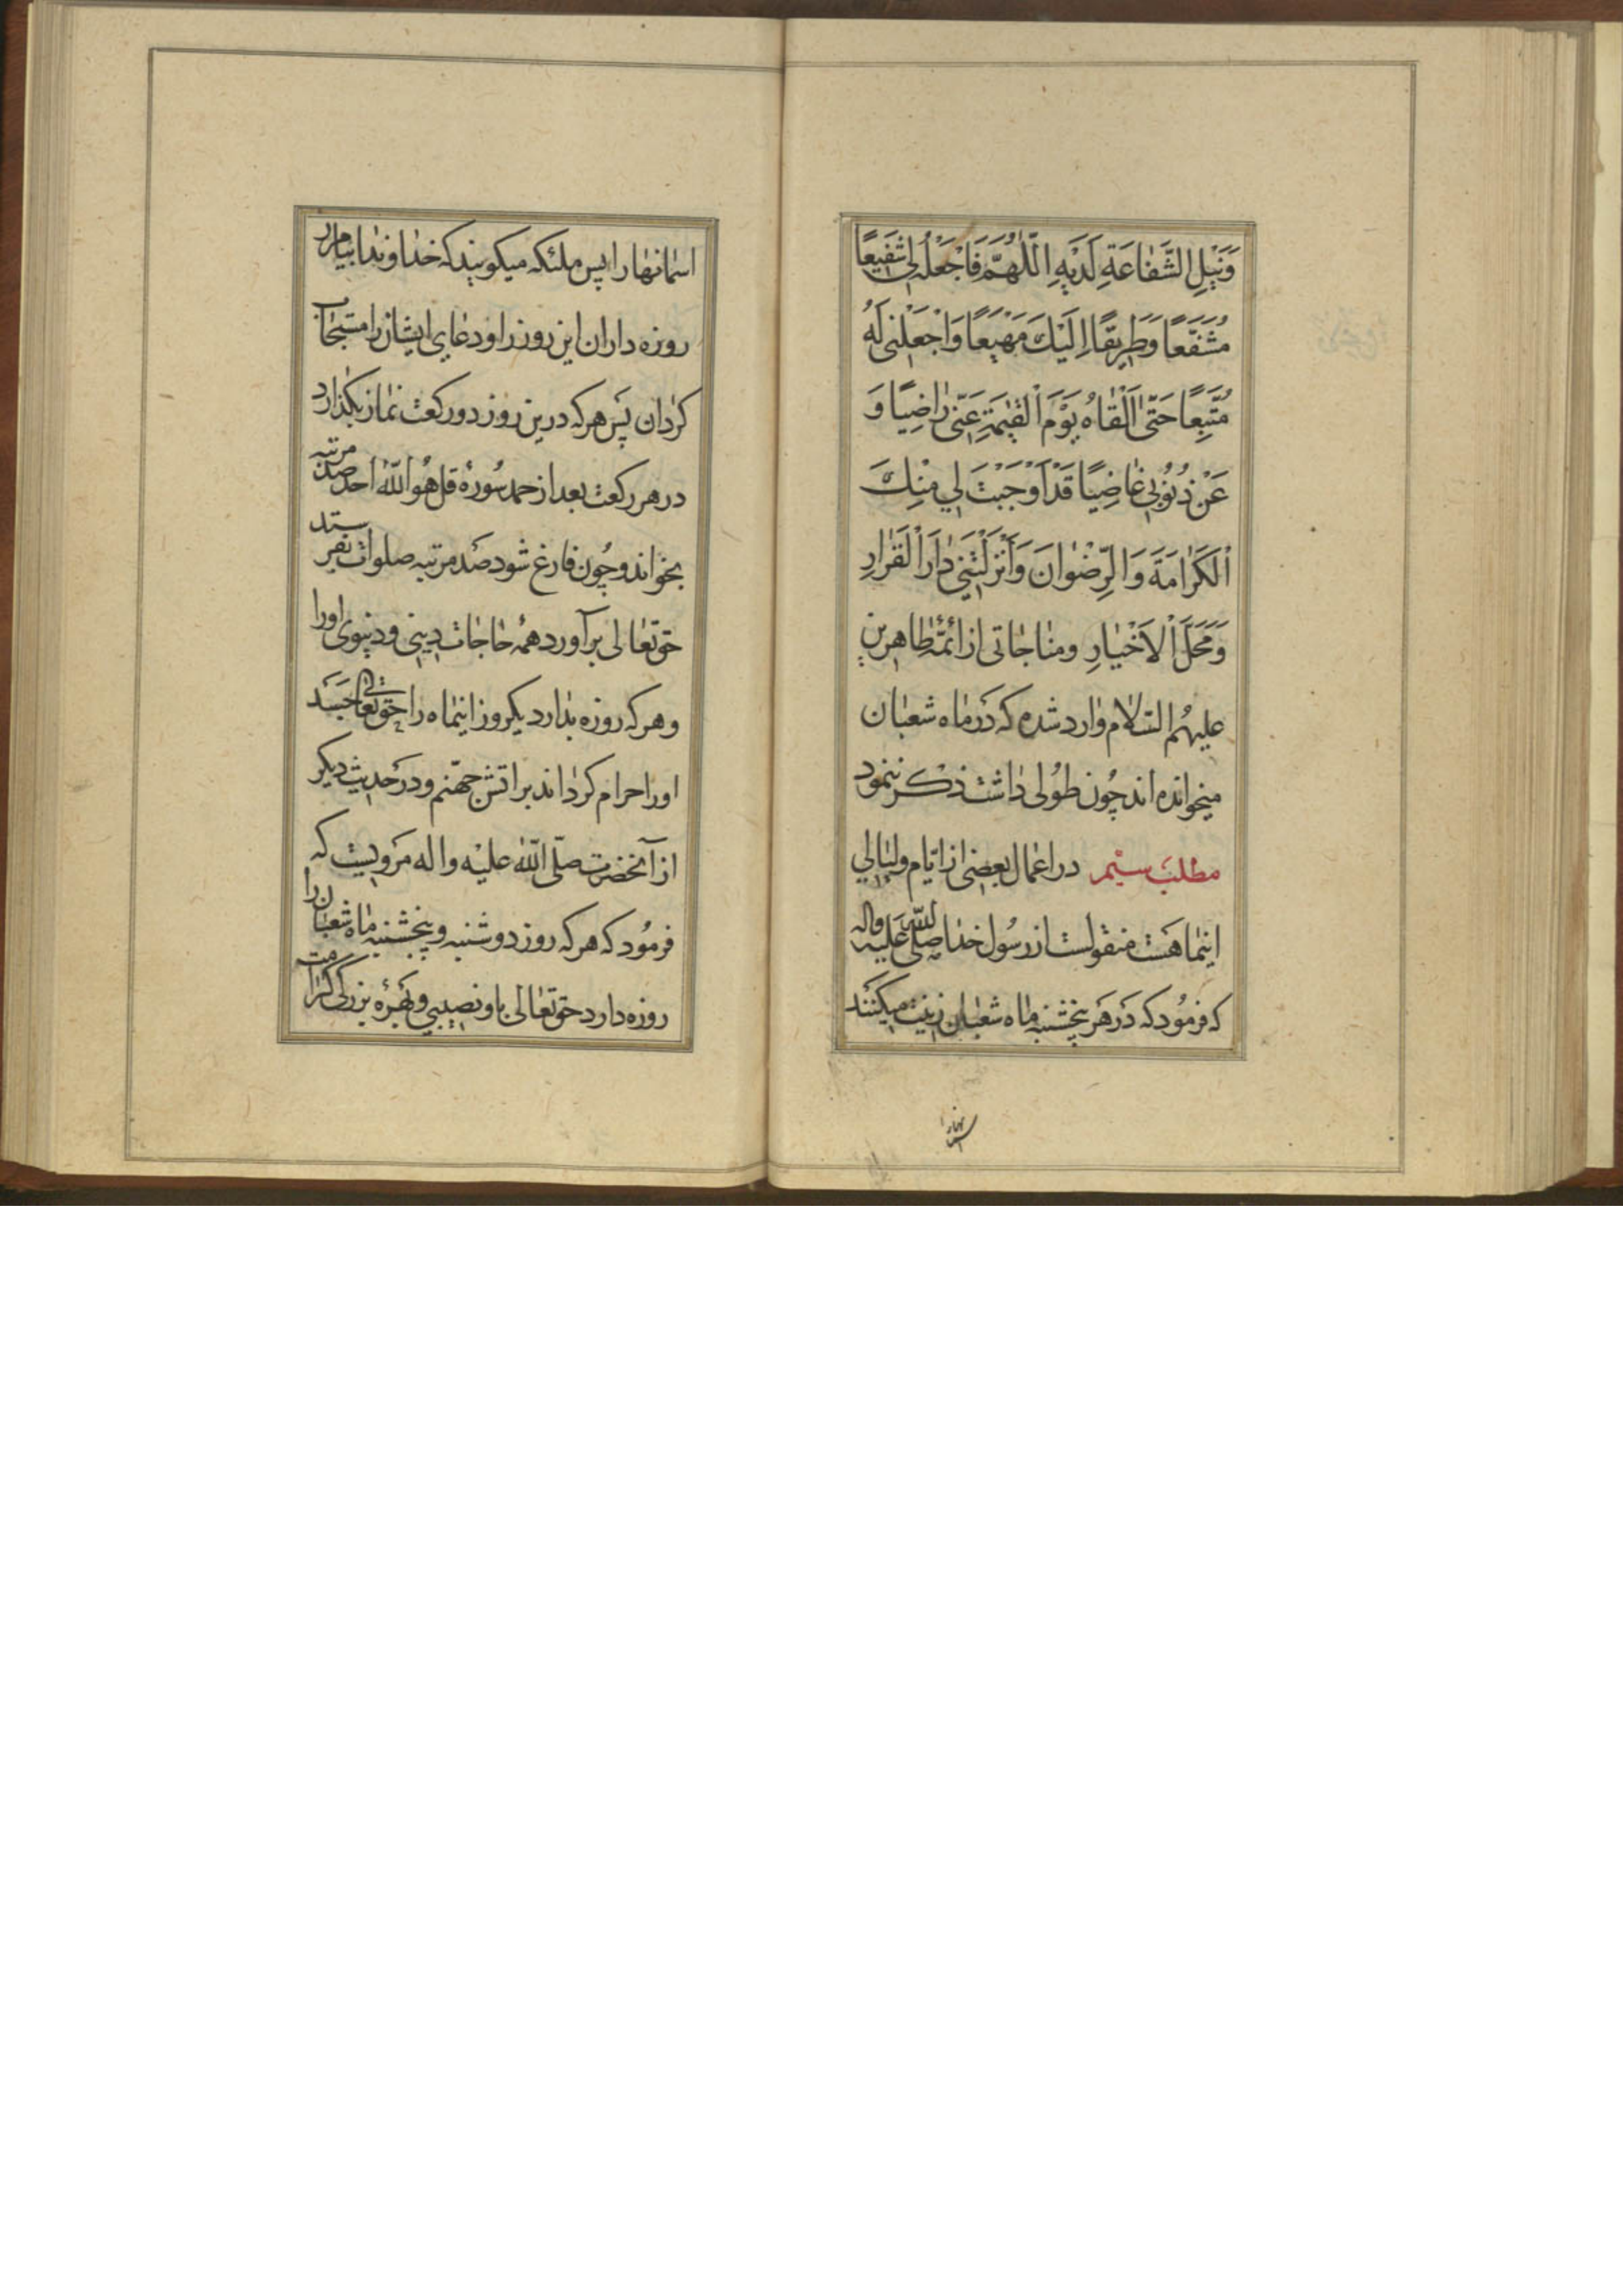 وَنَيْلِ الشَّفَاعَةِ لَدَيْهِ اَللّٰهُمَّ فَاجْعَلْهُ لِي شَفِيعًا
مُشَفَّعًا وَطَرِيقًا اِلَيْكَ مَهْيَعًا وَاجْعَلْنِي لَهُ
مُتَّبِعًا حَتّٰى اَلْقَاهُ يَوْمَ الْقِيٰمَةِ عَنِّي رَاضِيًا وَ
عَنْ ذُنُوبِي غَاضِيًا قَدْ اَوْجَبْتَ لِي مِنْكَ
الْكَرَامَةَ وَالرِّضْوَانَ وَاَنْزَلْتَنِي دَارَ الْقَرَارِ
وَمَحَلَّ الْاَخْيَارِ ومناجاتی از ائمّهٔ طاهرین
علیهم السّلام وارد شده که در ماه شعبان
میخوانده اند چون طولی داشت ذکر ننمود
مطلب سیّم در اعمال بعضی از ایّام ولیالی
اینماهست منقولست از رسول خدا صلّی الله علیه واله
که فرمود که در هر پنجشنبه ماه شعبان زینت میکنند
اسمانها را
اسمانها را پس ملئکه میکویند که خداوندا بیامرز
روزه داران این روز را ودعای ایشان را مستجاب
کردان پس هر که درین روز دو رکعت نماز بکذارد
در هر رکعت بعد از حمد سورهٔ قل هو اللّه احد صد مرتبه
بخواند وچون فارغ شود صد مرتبه صلوات بفرستد
حق تعالی برآورد همهٔ حاجات دینی ودنیوی اورا
وهر که روزه بدارد یکروز اینماه را حق تعالی جسد
اورا حرام کرداند بر اتش جهنّم ودر حدیث دیکر
از آنحضرت صلّی اللّه علیه واله مرویست که
فرمود که هر که روز دوشنبه وپنجشنبه ماه شعبان را
روزه دارد حق تعالی باو نصیبی وبهرهٔ بزرکی کرامت